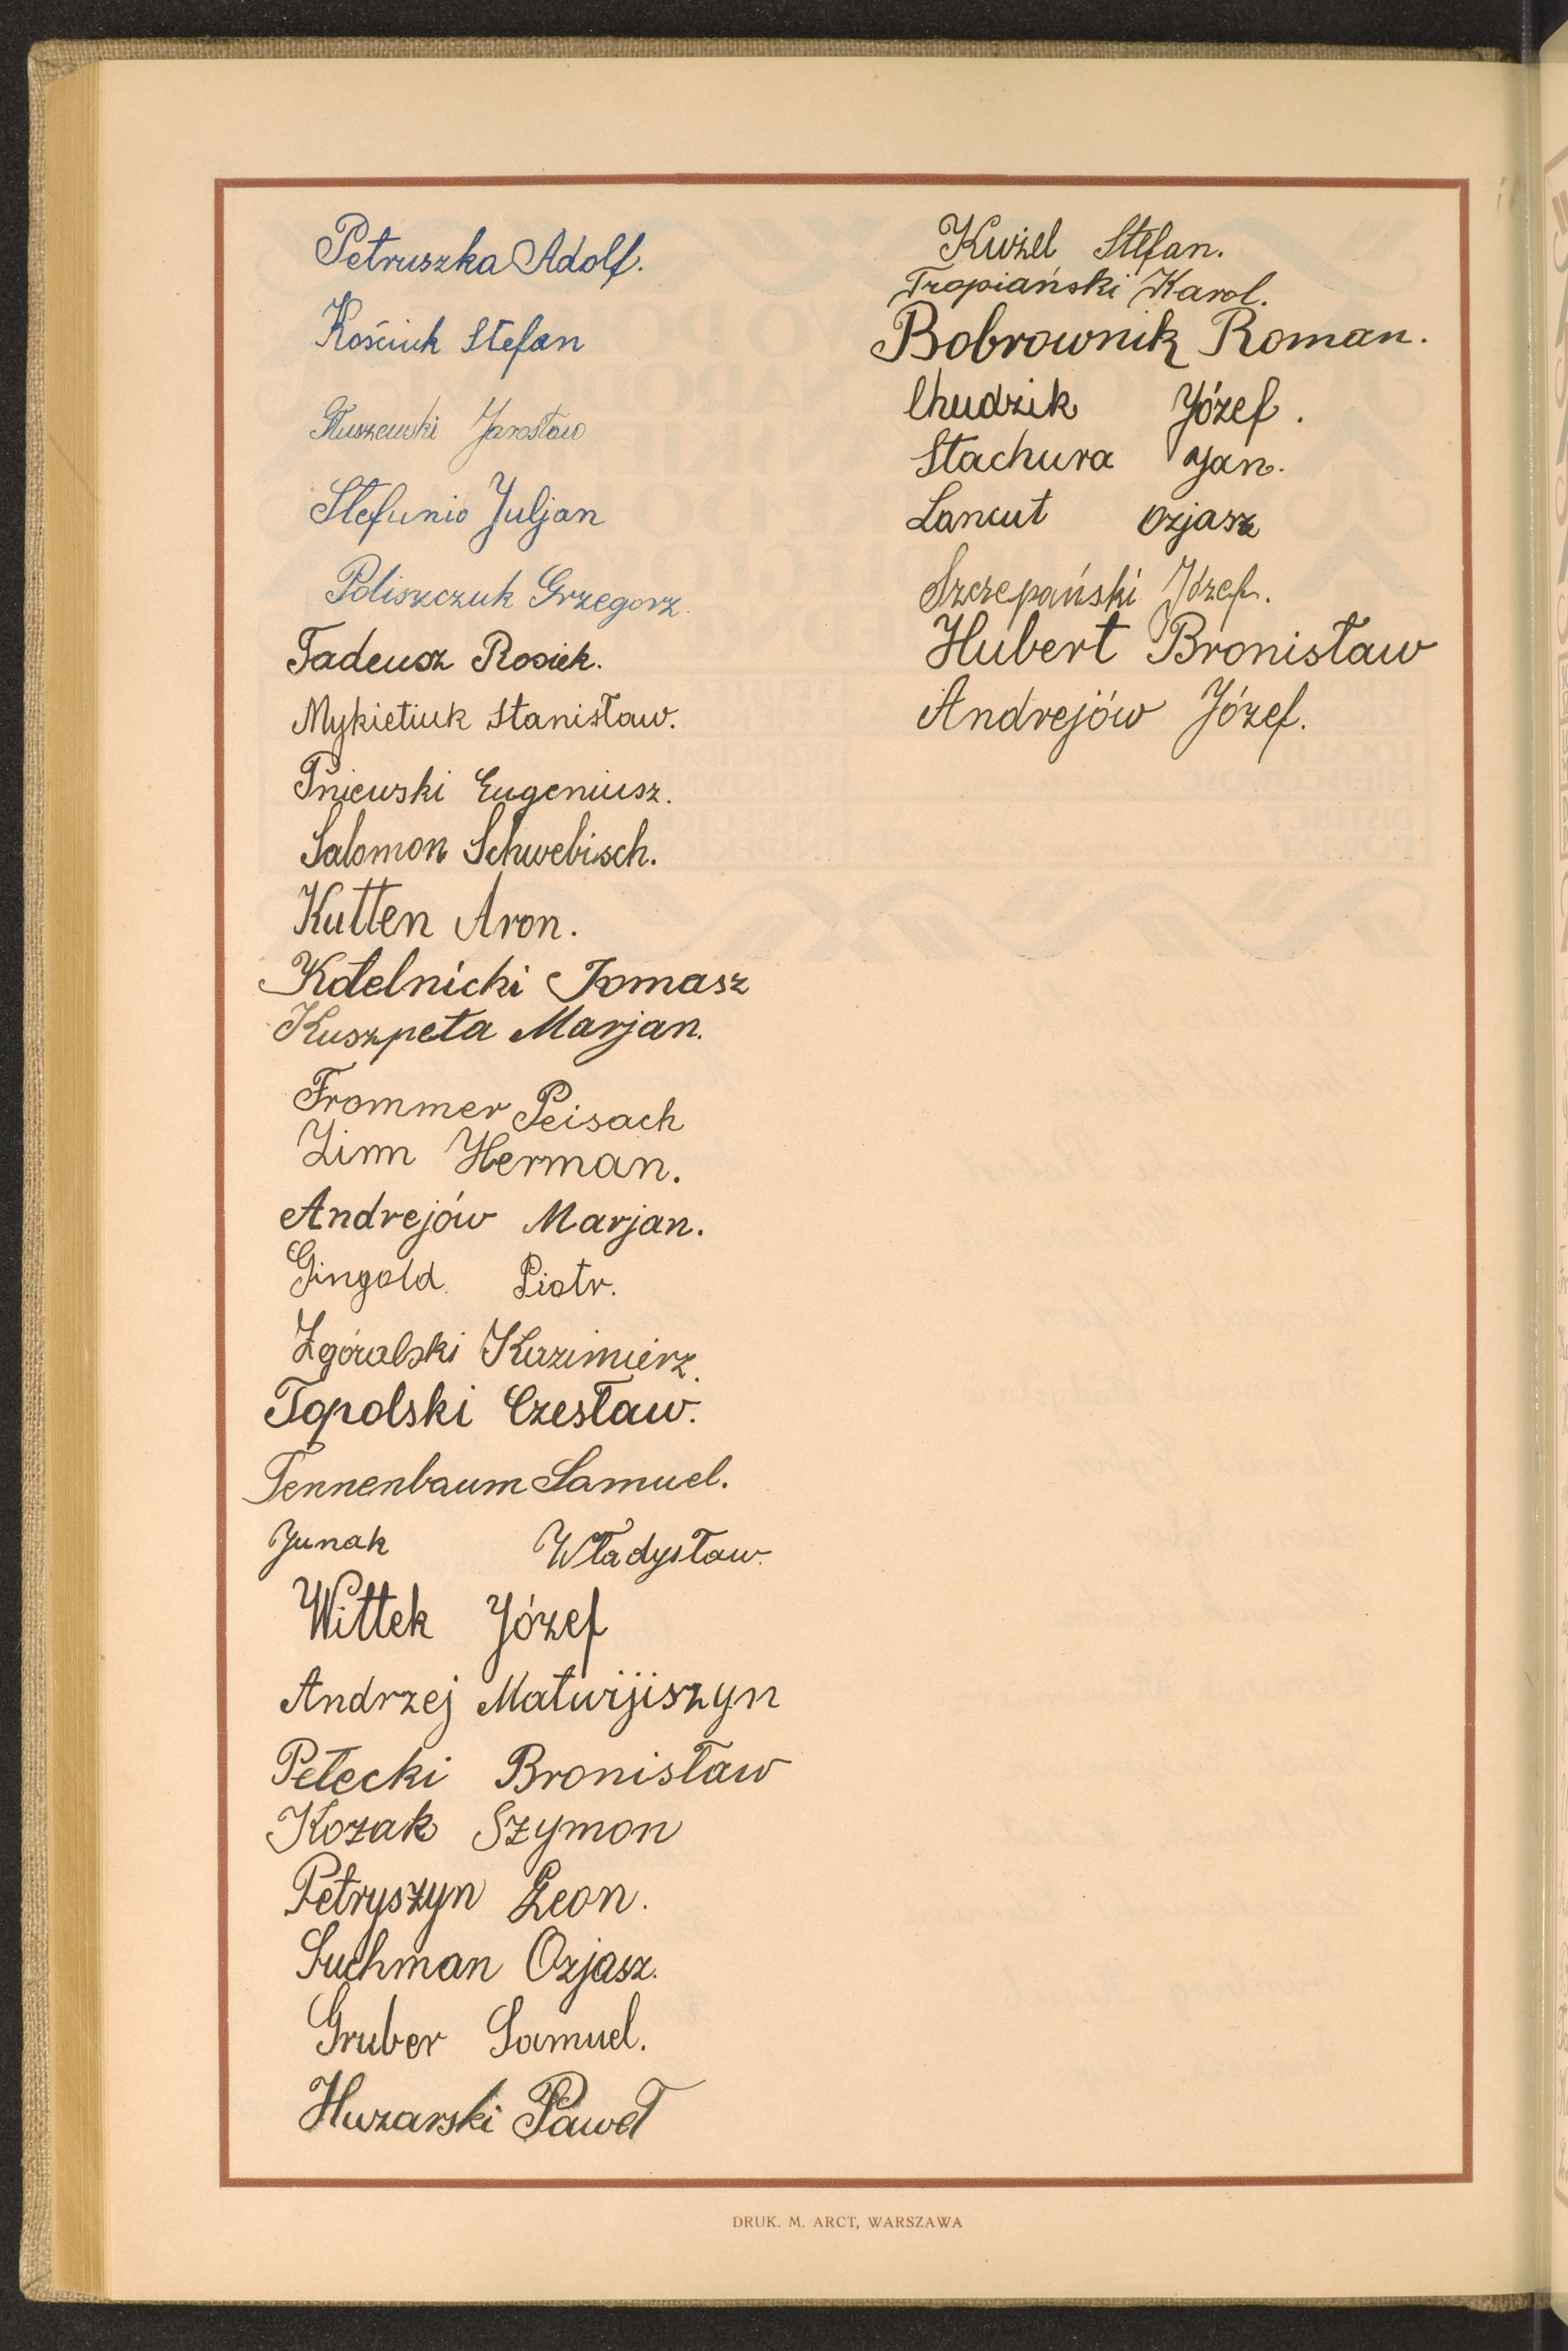 Petruszka Adolf.
Kościuk Stefan
Jarosław
Stefunio Juljan
Poliszczuk Grzegorz.
Tadeusz Rosiek.
Mykietiuk Stanisław.
Pniewski Eugeniusz.
Salomon Schwebisch.
Kutten Aron.
Kotelnicki Tomasz
Kuszpeta Marjan.
Frommer Peisach
Zinn Herman.
Andrejów Marjan.
Gingold Piotr.
Zgóralski Kazimierz.
Topolski Czesław.
Tennenbaum Samuel.
Junak Władysław.
Wittek Józef
Andrzej Matwijiszyn
Petecki Bronisław
Kozak Szymon
Petryszyn Leon.
Suchman Ozjasz.
Gruber Samuel.
Huzarski Paweł
Kużel Stefan.
Tropiański Karol.
Bobrownik Roman.
Chudzik Józef.
Stachura Jan.
Lancut Ozjasz
Szczepański Józef.
Hubert Bronisław
Andrejów Józef.
DRUK. M. ARCT, WARSZAWA